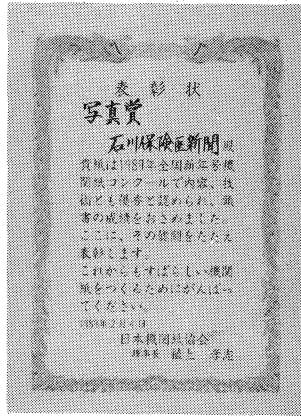 表彰状
写真賞
石川保険医新聞殿
貴紙は1989年全国新年号機
関紙コンクールで内容、技
術とも優秀と認められ、頭
書の成績をおさめました。
ここに、その健闘をたたえ
表彰します。
これからもすばらしい機関
紙をつくるためにがんばっ
てください。
1989年2月4日
日本機関紙協会
理事長 植上 孝志